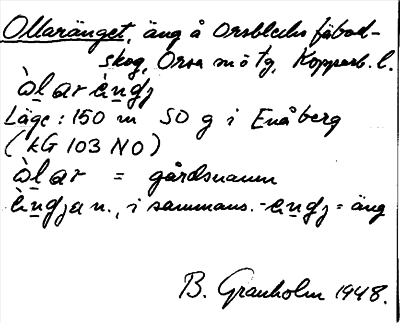 Ollaränget, äng å Orsbleckes fäbod-
skog, Orsa snötg, Kopparb. l.
òlarèngj
Läge: 150 m SO g i Enåberg
(KG 103 NO)
òlar = gårdsnamn
èngjan., i sammans. -engj = äng
B. Granholm 1948.